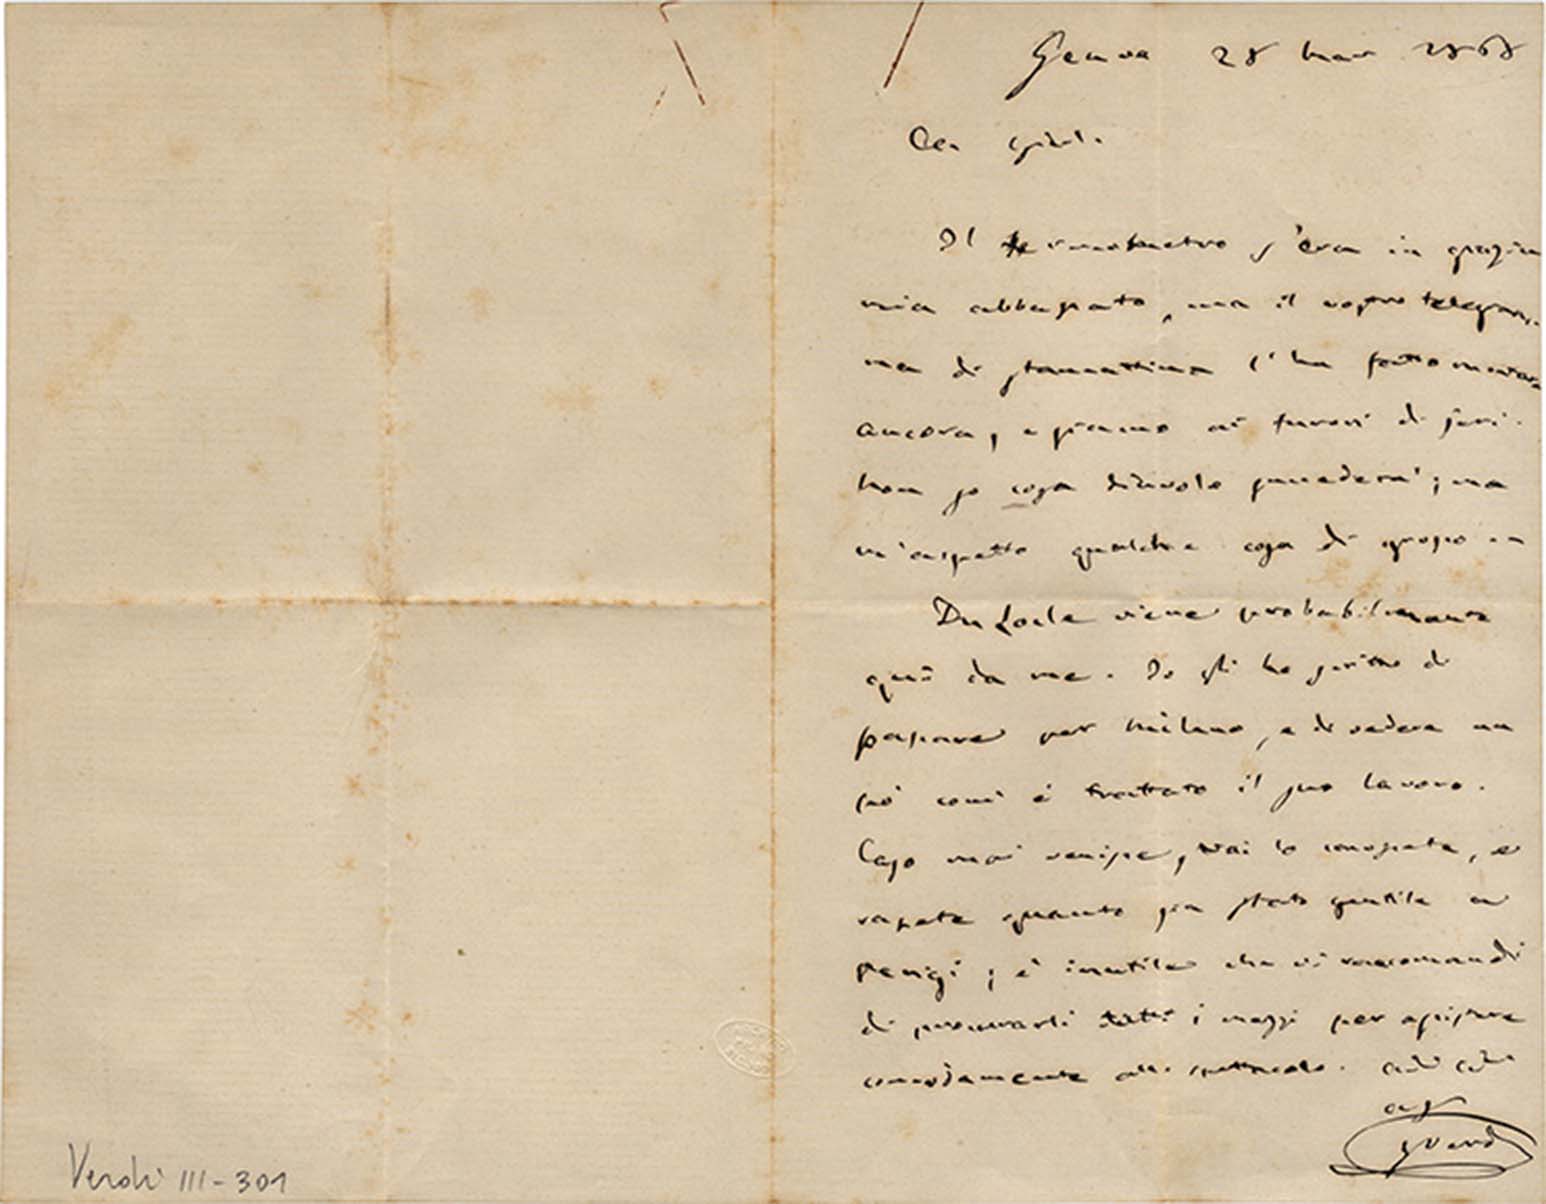 Genova 28 Mar 1868
Car Giulio
Il termometro s'era in grazia
mia abbassato, ma il vostro telegram-
ma di stamattina l'ha fatto montare
ancora, e siamo ai furori di jeri.
Non so cosa diavolo succederà; ma
m'aspetto qualche cosa di grosso
Du Locle viene probabilmente
quì da me. Io gli ho scritto di
passare per Milano, e di vedere un
pò com'è trattato il suo lavoro.
Caso mai venisse, voi lo conoscete, e
sapete quanto sia stato gentile a
Parigi; è inutile che vi raccomandi
di procurarli tutti i mezzi per assistere
comodamente allo spettacolo. Addio addio
aff
G Verdi
Verdi III-301